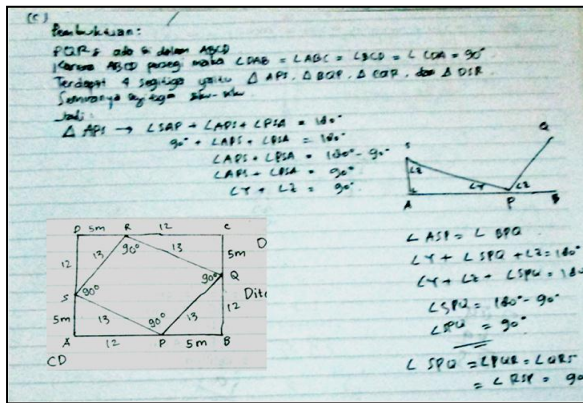 (c)
Pembuktian:
PQRS ada di dalam ABCD
Karena ABCD persegi maka ∠DAB = ∠ABC = ∠BCD = ∠CDA = 90°
Terdapat 4 segitiga yaitu △ APS, △ BQP, △ CQR, dan △ DSR
Semuanya segitiga siku-siku
Jadi:
△ APS → ∠SAP + ∠APS + ∠PSA = 180°
90° + ∠APS + ∠PSA = 180°
∠APS + ∠PSA = 180° - 90°
∠APS + ∠PSA = 90°
∠Y + ∠Z = 90°
S
Q
∠Z
∠Y
∠Z
A
P
B
∠ ASP = ∠ BPQ
∠Y + ∠SPQ + ∠Z = 180°
∠Y + ∠Z + ∠SPQ = 180°
∠SPQ = 180° - 90°
∠SPQ = 90°
∠ SPQ = ∠PQR = ∠QRS
= ∠RSP = 90
D 5m R 12 C
12 13 90° 13 5m
D
S 90° 90° Q
Dit
5m 13 90° 13 12
A 12 P 5m B
CD